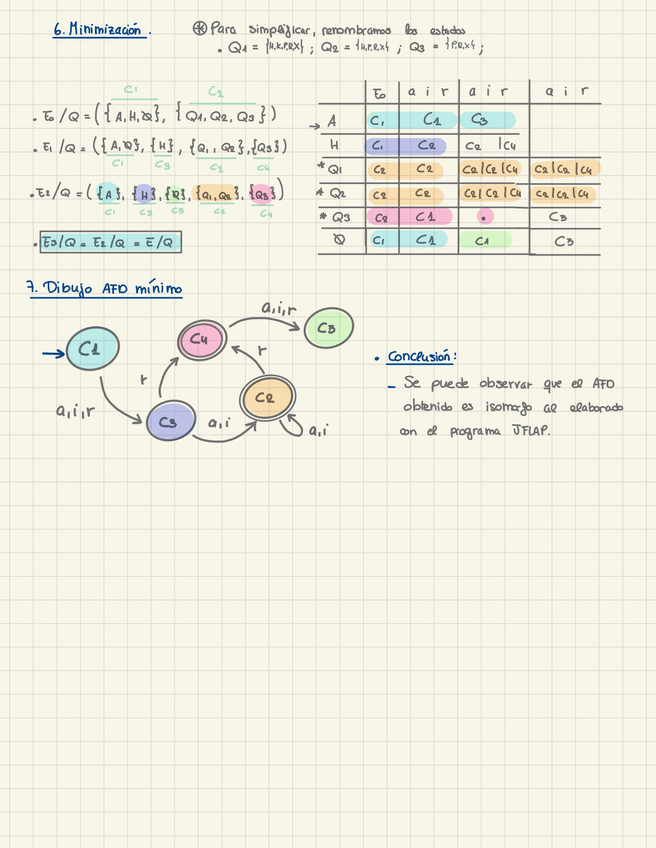 6. Minimización.
⊛ Para simplificar, renombramos los estados
• Q1 = {H,K,P,Q,X} ; Q2 = {H,P,Q,X} ; Q3 = {P,Q,X} ;
C1 C2
• E0/Q = ({A,H,∅}, {Q1,Q2,Q3})
• E1/Q = ({A,∅}, {H}, {Q1,Q2}, {Q3})
C1 C3 C2 C4
• E2/Q = ({A}, {H}, {∅}, {Q1,Q2}, {Q3})
C1 C3 C5 C2 C4
• E3/Q = E2/Q = E/Q
E0 | a i r | a i r | a i r
→ A | C1 | C1 | C3
H | C1 | C2 | C2 | C4
* Q1 | C2 | C2 | C2 | C2 | C4 | C2 | C2 | C4
* Q2 | C2 | C2 | C2 | C2 | C4 | C2 | C2 | C4
* Q3 | C2 | C1 | • | C5
∅ | C1 | C1 | C1 | C5
7. Dibujo AFD mínimo
a,i,r
C1
C4
C5
r
r
C2
a,i,r
C3
a,i
a,i
• Conclusión:
– Se puede observar que el AFD
obtenido es isomorfo al elaborado
con el programa JFLAP.